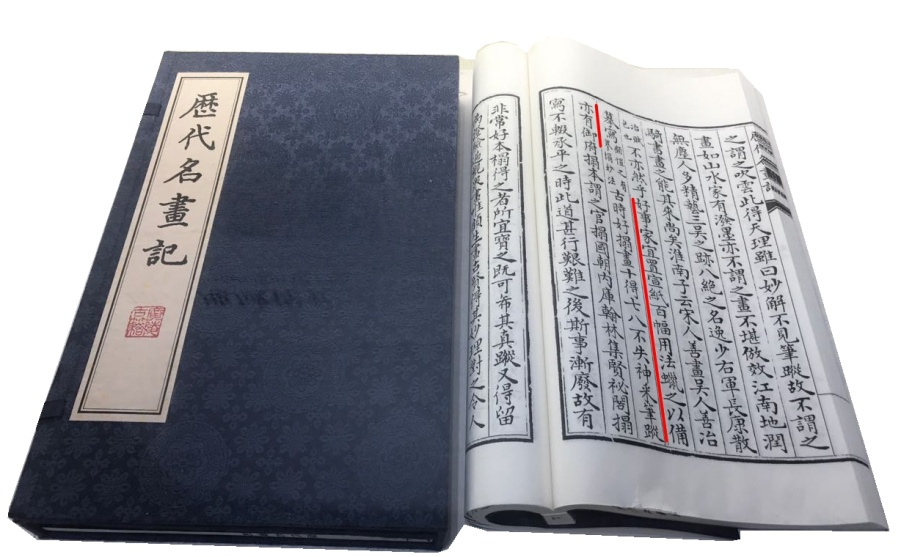 厯代名畫記
之謂之吹雲此得天理雖曰妙解不見筆蹤故不謂之
畫如山水家有潑墨亦不謂之畫不堪倣效江南地潤
無塵人多精藝三吳之跡八絕之名逸少右軍長康散
騎書畫之能其來尚矣淮南子云宋人善畫吳人善冶
不亦然乎好事家宜置宣紙百幅用法蠟之以備
摹寫顧愷之有摹搨妙法古時好搨畫十得七八不失神采筆蹤
亦有御府搨本謂之官搨國朝內庫翰林集賢祕閣搨
寫不輟承平之時此道甚行艱難之後斯事漸廢故有
非常好本搨得之者所宜寶之既可希其真蹤又得留